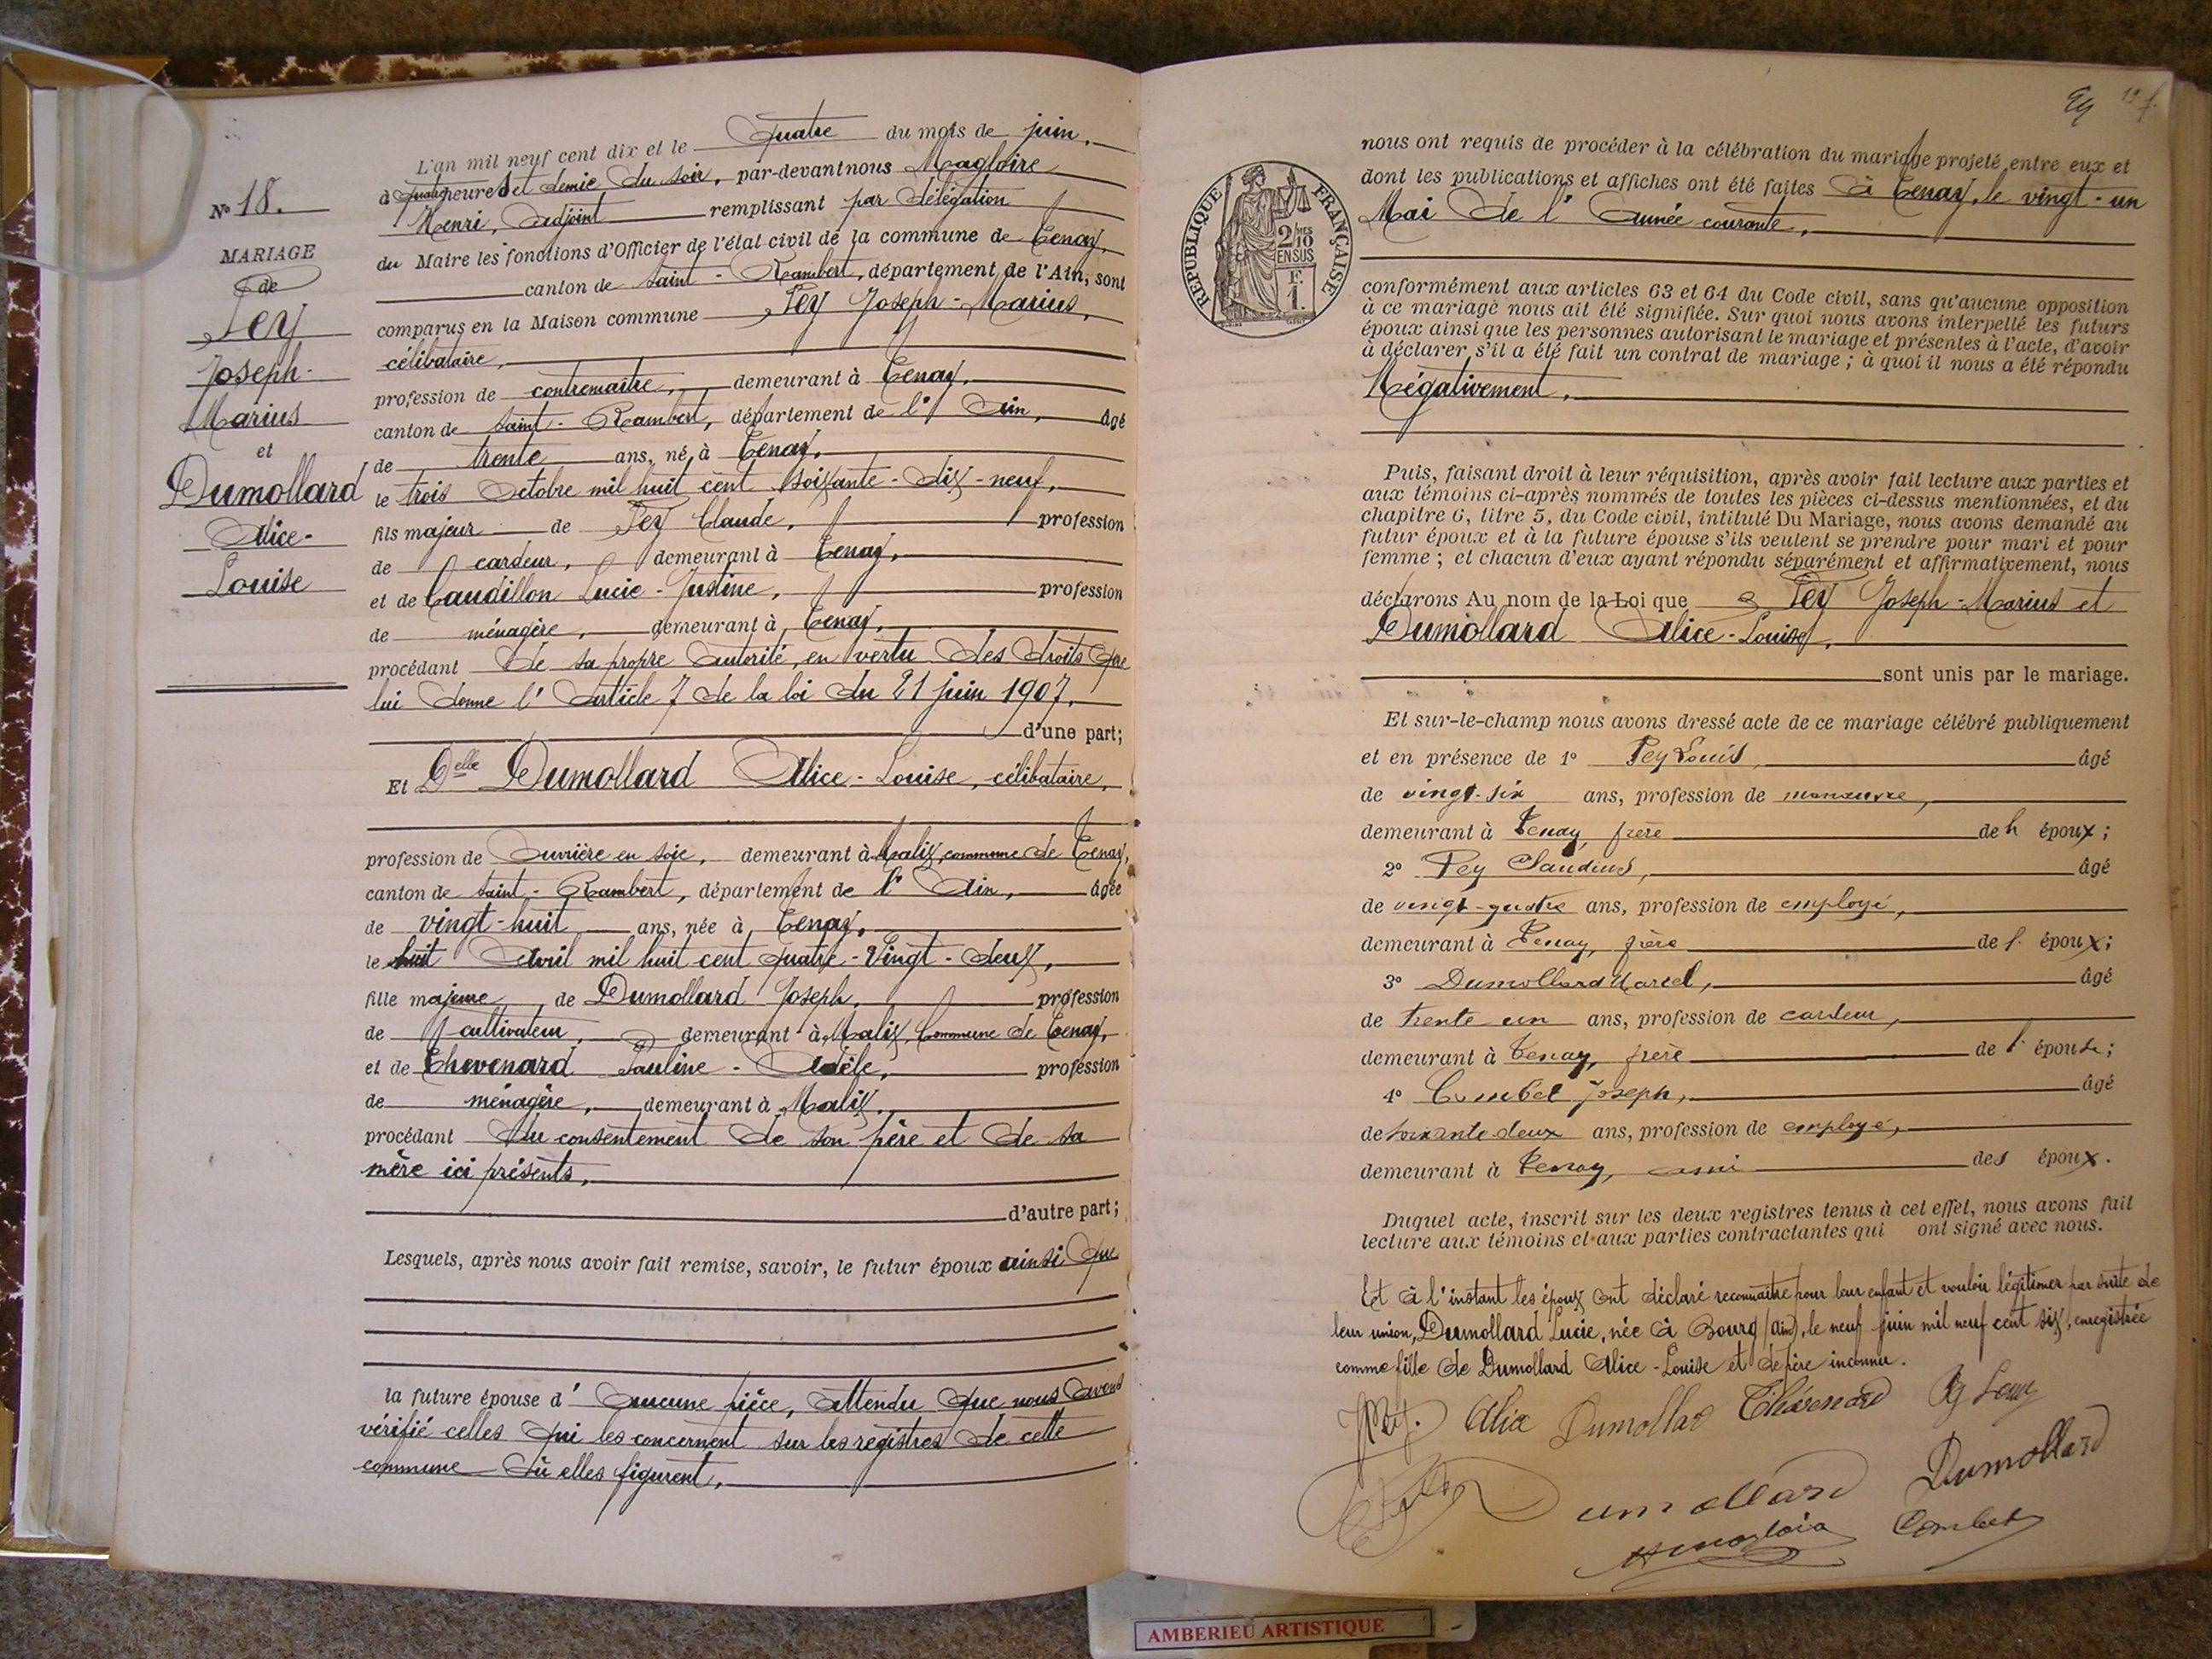 L'an mil neuf cent dix et le quatre du mois de juin,
à quatre heures et demie du soir, par-devant nous Magloire
Henri, adjoint remplissant par délégation
du Maire les fonctions d'Officier de l'état civil de la commune de Tenay,
canton de Saint-Rambert, département de l'Ain, sont
comparus en la Maison commune Pey Joseph-Marius,
célibataire,
profession de contremaître, demeurant à Tenay,
canton de Saint-Rambert, département de l'Ain, âgé
de trente ans, né à Tenay,
le trois Octobre mil huit cent soixante-dix-neuf,
fils majeur de Pey Claude, profession
de cardeur, demeurant à Tenay,
et de Caudillon Lucie-Justine, profession
de ménagère, demeurant à Tenay,
procédant de sa propre autorité, en vertu des droits que
lui donne l'article 7 de la loi du 21 juin 1907,
d'une part;
Et Delle Dumollard Alice-Louise, célibataire,
profession de Ouvrière en soie, demeurant à Malix, commune de Tenay,
canton de Saint-Rambert, département de l'Ain, âgée
de vingt-huit ans, née à Tenay,
le huit Avril mil huit cent quatre-vingt-deux,
fille majeure de Dumollard Joseph, profession
de cultivateur, demeurant à Malix, Commune de Tenay,
et de Thevenard Pauline-Adèle, profession
de ménagère, demeurant à Malix,
procédant du consentement de son père et de sa
mère ici présents,
d'autre part;
Lesquels, après nous avoir fait remise, savoir, le futur époux ainsi que
la future épouse d'aucune pièce, attendu que nous avons
vérifié celles qui les concernent sur les registres de cette
commune où elles figurent,
No 18.
MARIAGE
de
Pey
Joseph-
Marius
et
Dumollard
Alice-
Louise
RÉPUBLIQUE FRANÇAISE
2/10 MES
EN SUS
F.
1.
nous ont requis de procéder à la célébration du mariage projeté entre eux et
dont les publications et affiches ont été faites à Tenay, le vingt-un
Mai de l'année courante,
conformément aux articles 63 et 64 du Code civil, sans qu'aucune opposition
à ce mariage nous ait été signifiée. Sur quoi nous avons interpellé les futurs
époux ainsi que les personnes autorisant le mariage et présentes à l'acte, d'avoir
à déclarer s'il a été fait un contrat de mariage ; à quoi il nous a été répondu
Négativement,
Puis, faisant droit à leur réquisition, après avoir fait lecture aux parties et
aux témoins ci-après nommés de toutes les pièces ci-dessus mentionnées, et du
chapitre 6, titre 5, du Code civil, intitulé Du Mariage, nous avons demandé au
futur époux et à la future épouse s'ils veulent se prendre pour mari et pour
femme ; et chacun d'eux ayant répondu séparément et affirmativement, nous
déclarons Au nom de la Loi que Pey Joseph-Marius et
Dumollard Alice-Louise,
sont unis par le mariage.
Et sur-le-champ nous avons dressé acte de ce mariage célébré publiquement
et en présence de 1º Pey Louis, âgé
de vingt-six ans, profession de manœuvre,
demeurant à Tenay, frère de l'époux ;
2º Pey Claudius, âgé
de vingt-quatre ans, profession de employé,
demeurant à Tenay, frère de l'époux;
3º Dumollard Marcel, âgé
de trente un ans, profession de cardeur,
demeurant à Tenay, frère de l'épouse;
4º Combet Joseph, âgé
de soixante deux ans, profession de employé,
demeurant à Tenay, ami des époux.
Duquel acte, inscrit sur les deux registres tenus à cet effet, nous avons fait
lecture aux témoins et aux parties contractantes qui ont signé avec nous.
Et à l'instant les époux ont déclaré reconnaître pour leur enfant et vouloir légitimer par suite de
leur union, Dumollard Lucie, née à Bourg (Ain), le neuf juin mil neuf cent six, enregistrée
comme fille de Dumollard Alice-Louise et de père inconnu.
Alice Dumollard Thévenard Pey Louis
Dumollard Dumollard
H Magloire Combet
AMBERIEU ARTISTIQUE